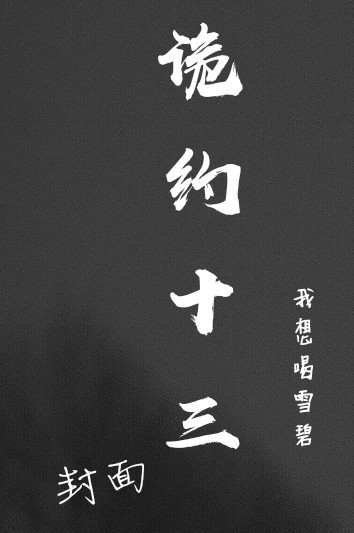 诡约十三
我想喝雪碧
封面